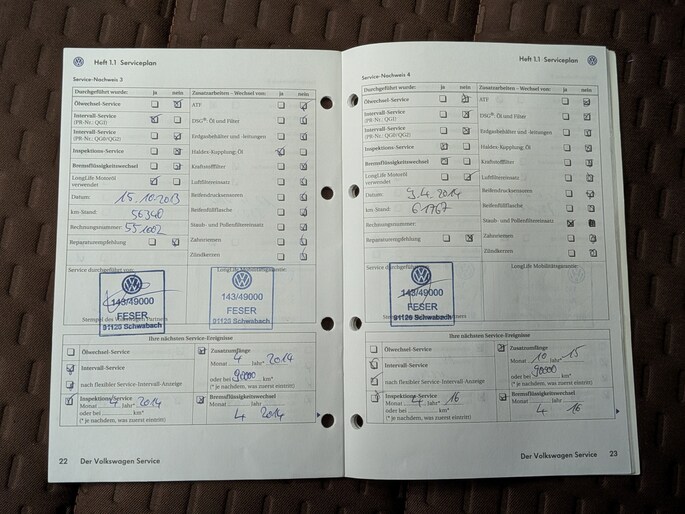 Heft 1.1 Serviceplan
Service-Nachweis 3
Durchgeführt wurde: ja nein
Ölwechsel-Service
Intervall-Service
(PR-Nr.: QG1)
Intervall-Service
(PR-Nr.: QG0/QG2)
Inspektions-Service
Bremsflüssigkeitswechsel
LongLife Motoröl
verwendet
Datum: 15.10.2013
km-Stand: 56340
Rechnungsnummer: 551002
Reparaturempfehlung
Zusatzarbeiten - Wechsel von: ja nein
ATF
DSG®: Öl und Filter
Erdgasbehälter und -leitungen
Haldex-Kupplung: Öl
Kraftstofffilter
Luftfiltereinsatz
Reifendrucksensoren
Reifenfüllflasche
Staub- und Pollenfiltereinsatz
Zahnriemen
Zündkerzen
Service durchgeführt von:
LongLife Mobilitätsgarantie
143/49000
FESER
91126 Schwabach
Stempel des Volkswagen Partners
143/49000
FESER
91126 Schwabach
Ihre nächsten Service-Ereignisse
Ölwechsel-Service
Intervall-Service
nach flexibler Service-Intervall-Anzeige
Inspektions-Service
Monat 4 Jahr* 2014
oder bei km*
(* je nachdem, was zuerst eintritt)
Zusatzumfänge
Monat 4 Jahr* 2014
oder bei 90000 km*
(* je nachdem, was zuerst eintritt)
Bremsflüssigkeitswechsel
Monat Jahr
4 2014
22 Der Volkswagen Service
Heft 1.1 Serviceplan
Service-Nachweis 4
Durchgeführt wurde: ja nein
Ölwechsel-Service
Intervall-Service
(PR-Nr.: QG1)
Intervall-Service
(PR-Nr.: QG0/QG2)
Inspektions-Service
Bremsflüssigkeitswechsel
LongLife Motoröl
verwendet
Datum: 9.4.2014
km-Stand: 61767
Rechnungsnummer:
Reparaturempfehlung
Zusatzarbeiten - Wechsel von: ja nein
ATF
DSG®: Öl und Filter
Erdgasbehälter und -leitungen
Haldex-Kupplung: Öl
Kraftstofffilter
Luftfiltereinsatz
Reifendrucksensoren
Reifenfüllflasche
Staub- und Pollenfiltereinsatz
Zahnriemen
Zündkerzen
Service durchgeführt
LongLife Mobilitätsgarantie
143/49000
FESER
91126 Schwabach
Stempel des Volkswagen Partners
Ihre nächsten Service-Ereignisse
Ölwechsel-Service
Intervall-Service
nach flexibler Service-Intervall-Anzeige
Inspektions-Service
Monat 4 Jahr* 16
oder bei km*
(* je nachdem, was zuerst eintritt)
Zusatzumfänge
Monat 10 Jahr* 15
oder bei 90000 km*
(* je nachdem, was zuerst eintritt)
Bremsflüssigkeitswechsel
Monat Jahr
4 16
Der Volkswagen Service 23